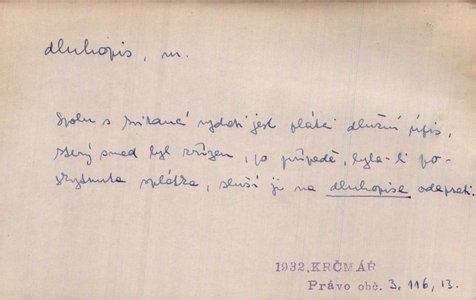 dluhopis, m.
Spolu s kvitancí vydati jest plátci dlužní úpis,
který snad byl zřízen, po případě, byla-li po-
skytnuta splátka, sluší ji na dluhopise odepsati.
1932, KRČMÁŘ
Právo obč. 3, 116, 13.